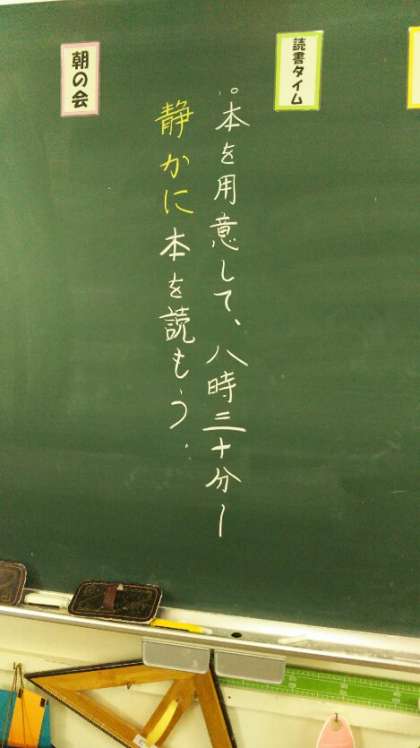 読書タイム
。本を用意して、八時三十分〜
静かに本を読もう.
朝の会